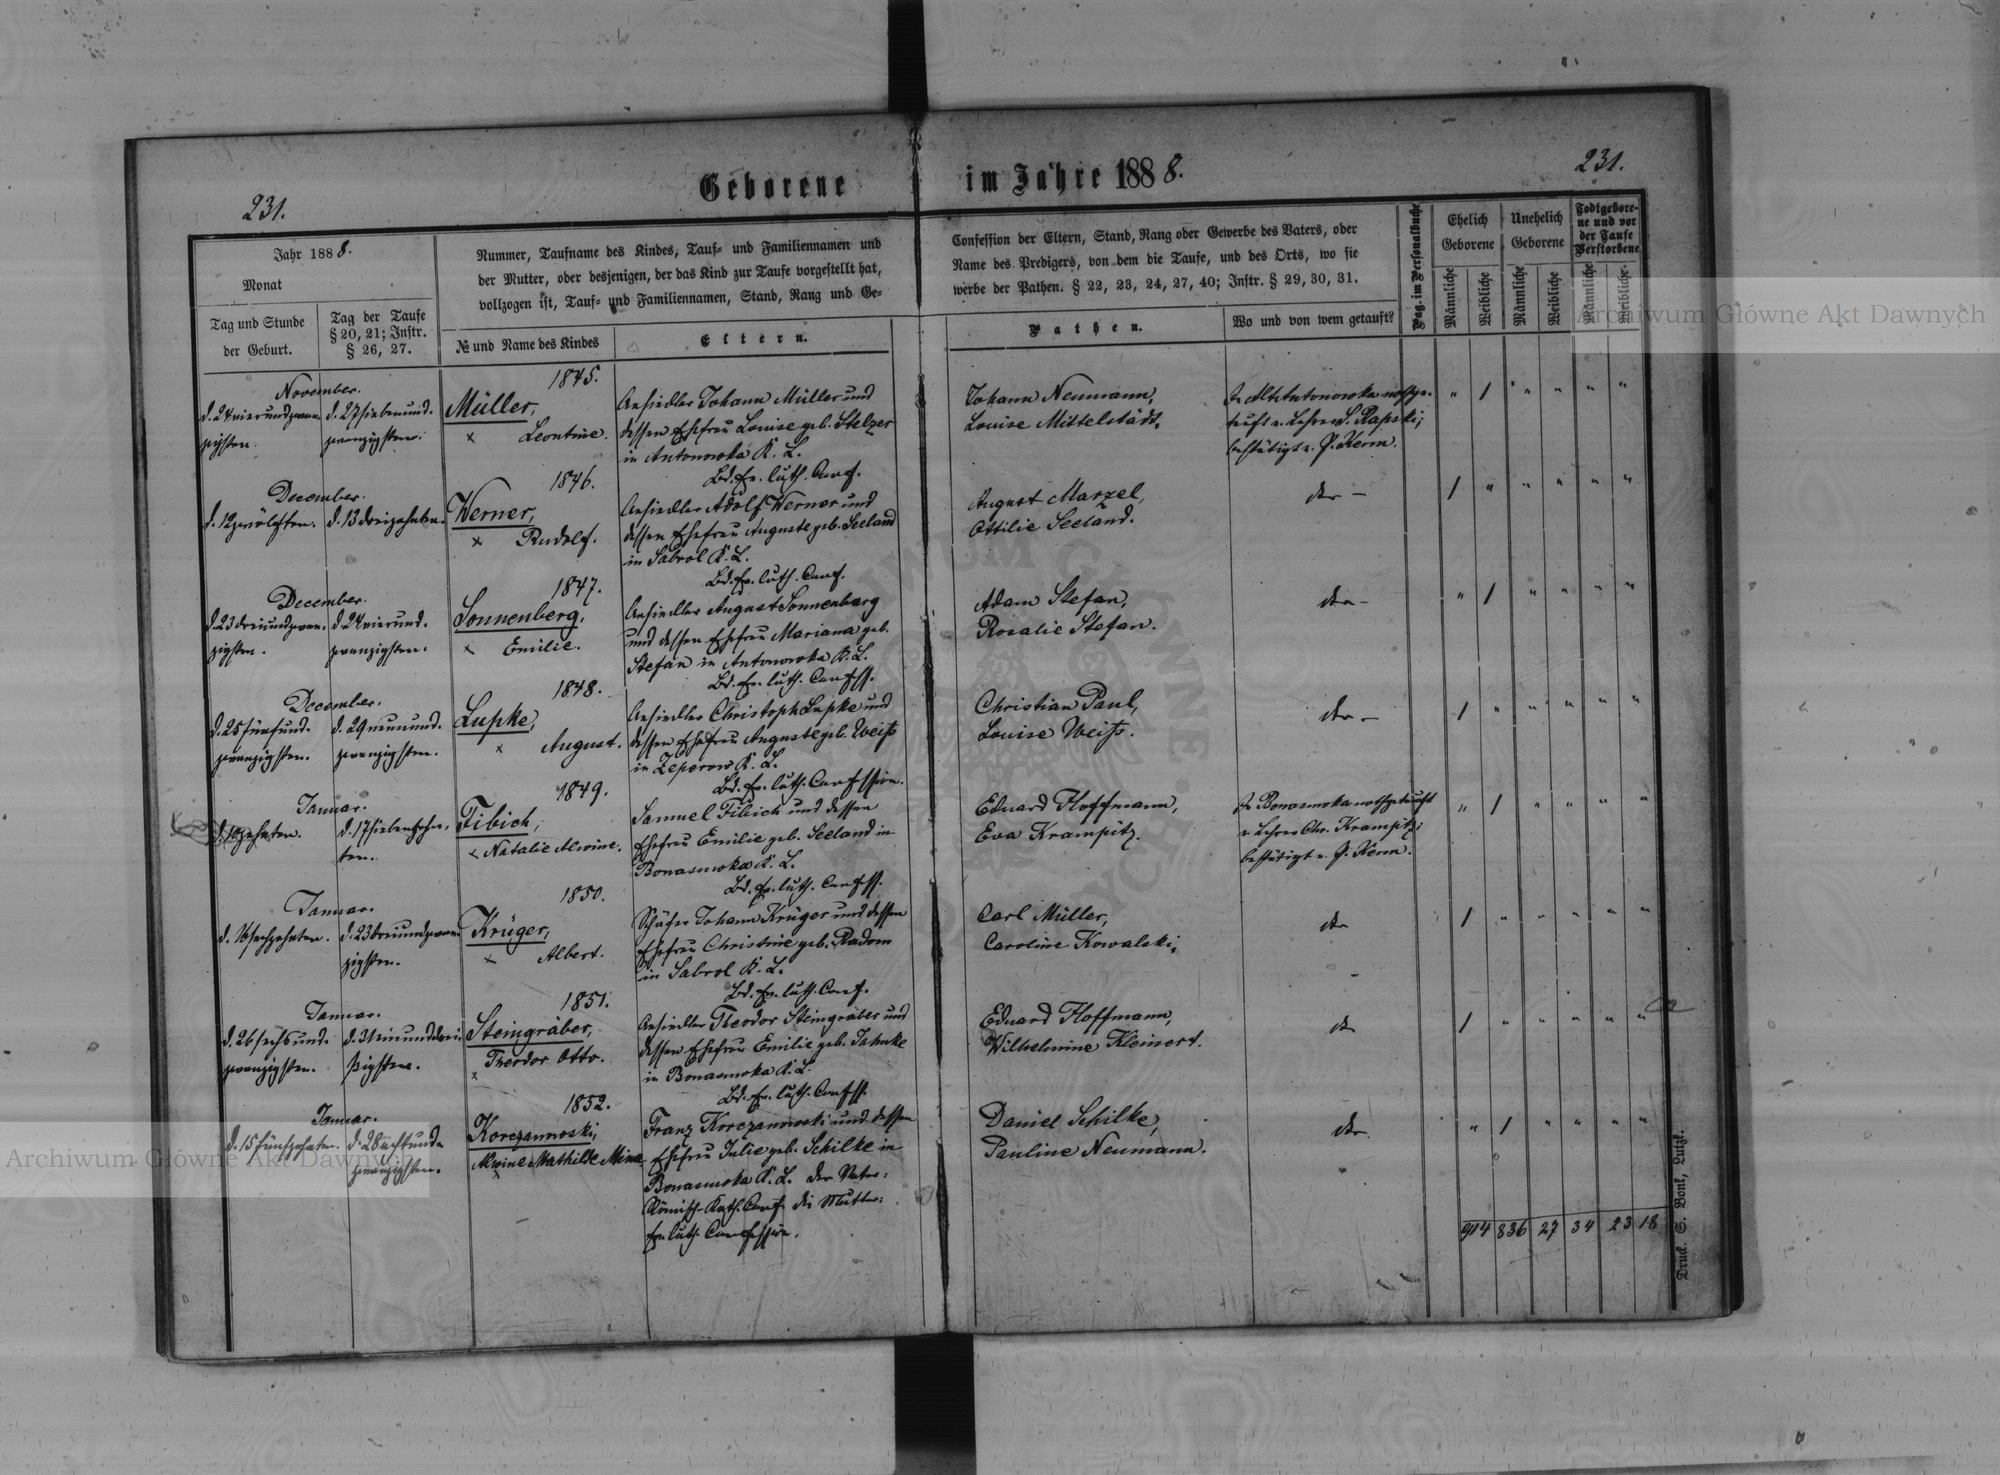 Geborene im Jahre 1888.
231.
231.
Jahr 1888.
Monat
Tag und Stunde
der Geburt.
Tag der Taufe
§ 20, 21; Instr.
§ 26, 27.
Nummer, Taufname des Kindes, Tauf- und Familiennamen und
der Mutter, oder desjenigen, der das Kind zur Taufe vorgestellt hat,
vollzogen ist, Tauf- und Familiennamen, Stand, Rang und Ge-
№ und Name des Kindes
Eltern.
Confession der Eltern, Stand, Rang oder Gewerbe des Vaters, oder
Name des Predigers, von dem die Taufe, und des Orts, wo sie
werbe der Pathen. § 22, 23, 24, 27, 40; Instr. § 29, 30, 31.
Pathen.
Wo und von wem getauft?
Pag. im Personalbuche
Ehelich
Geborene
Unehelich
Geborene
Todtgebore-
ne und vor
der Taufe
Verstorbene
Männliche
Weibliche
Männliche
Weibliche
Männliche
Weibliche.
November.
d. 24 vierundzwan-
zigsten.
d. 27 siebenund-
zwanzigsten.
1845.
Müller,
× Leontine.
Ansiedler Johann Müller und
dessen Ehefrau Louise geb. Stelzer
in Antonowka K. L.
Bd. Ev. luth. Conf.
Johann Neumann,
Louise Mittelstädt.
In Alt Antonowka nothge-
tauft v. Lehrer S. Rapski;
bestätigt v. P. Kerm.
" / " " " "
December.
d. 12 zwölften.
d. 13 dreizehnten.
1846.
Werner,
× Rudolf.
Ansiedler Adolf Werner und
dessen Ehefrau Auguste geb. Seeland
in Sabrol K. L.
Bd. Ev. luth. Conf.
August Marzel,
Ottilie Seeland.
dto –
/ " " " " "
December.
d. 23 dreiundzwan-
zigsten.
d. 24 vierund-
zwanzigsten.
1847.
Sonnenberg,
× Emilie.
Ansiedler August Sonnenberg
und dessen Ehefrau Mariana geb.
Stefan in Antonowka K. L.
Bd. Ev. luth. Confss.
Adam Stefan,
Rosalie Stefan.
dto –
" / " " " "
December.
d. 25 fünfund-
zwanzigsten.
d. 29 neunund-
zwanzigsten.
1848.
Lupke,
× August.
Ansiedler Christoph Lupke und
dessen Ehefrau Auguste geb. Weiß
in Zeperow K. L.
Bd. Ev. luth. Confssion.
Christian Paul,
Louise Weiß.
dto –
/ " " " " "
Januar.
d. 10 zehnten.
d. 17 siebenzehn-
ten.
1849.
Fibich,
× Natalie Alwine.
Samuel Fibich und dessen
Ehefrau Emilie geb. Seeland in
Bonasowka K. L.
Bd. Ev. luth. Confss.
Eduard Hoffmann,
Eva Krampitz.
In Bonasowka nothgetauft
v. Lehrer Chr. Krampitz;
bestätigt v. P. Kerm.
" / " " " "
Januar.
d. 16 sechzehnten.
d. 23 dreiundzwan-
zigsten.
1850.
Krüger,
× Albert.
Schäfer Johann Krüger und dessen
Ehefrau Christine geb. Radom
in Sabrol K. L.
Bd. Ev. luth. Conf.
Carl Müller,
Caroline Kowalski.
dto
/ " " " " "
Januar.
d. 26 sechsund-
zwanzigsten.
d. 31 einunddrei-
ßigsten.
1851.
Steingräber,
× Theodor Otto.
Ansiedler Theodor Steingräber und
dessen Ehefrau Emilie geb. Jahnke
in Bonasowka K. L.
Bd. Ev. luth. Confss.
Eduard Hoffmann,
Wilhelmine Kleinert.
dto
/ " " " " "
Januar.
d. 15 fünfzehnten.
d. 28 achtund-
zwanzigsten.
1852.
Korczanowski,
× Alwine Mathilde Mina
Franz Korczanowski und dessen
Ehefrau Julie geb. Schilke in
Bonasowka K. L. Der Vater:
Römisch-Kath. Conf. die Mutter:
Ev. luth. Confession.
Daniel Schilke,
Pauline Neumann.
dto.
" / " " " "
914 836 27 34 23 18
Druck. S. Bonk, Lutzk.
Archiwum Główne Akt Dawnych
Archiwum Główne Akt Dawnych